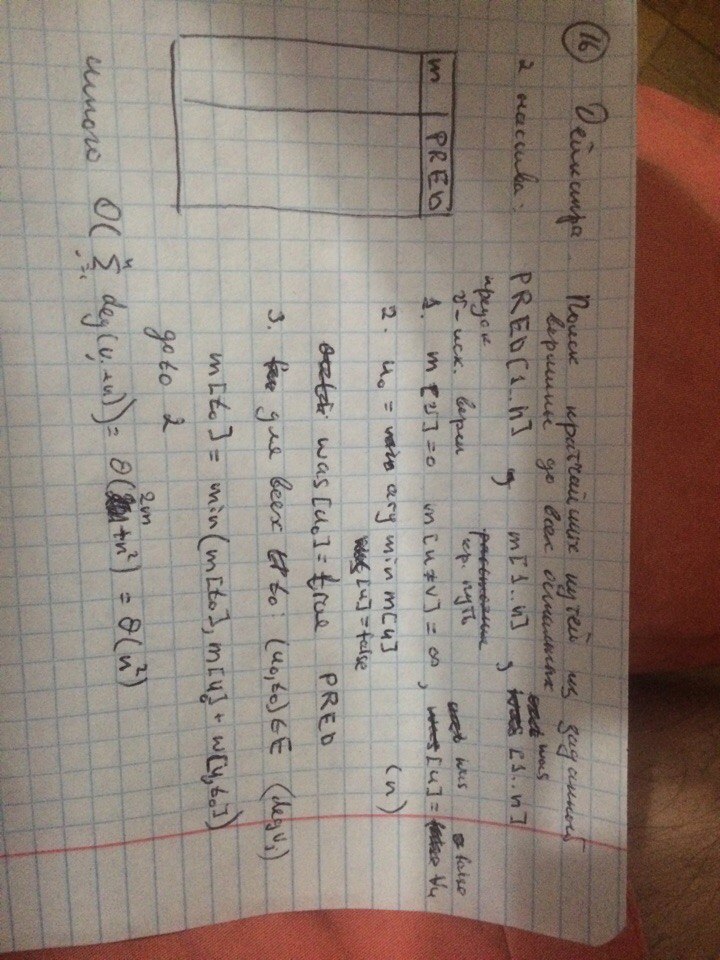 16 Дейкстра. Поиск кратчайших путей из заданной
вершины до всех остальных
2 массива: PRED[1..n], m[1..n], was[1..n]
предок кр. путь
v - исх. верш
m PRED
1. m[v]=0 m[u≠v]=∞, was[u]=false ∀u
2. u₀ = arg min m[u] (n)
[u]=false
was[u₀]=true PRED
3. для всех t₀: (u₀,t₀)∈E (deg vᵢ)
m[t₀] = min(m[t₀], m[u₀] + w[u₀,t₀])
goto 2
итого O(∑ⁿᵢ₌₁ deg(vᵢ+n)) = θ(2m+n²) = θ(n²)